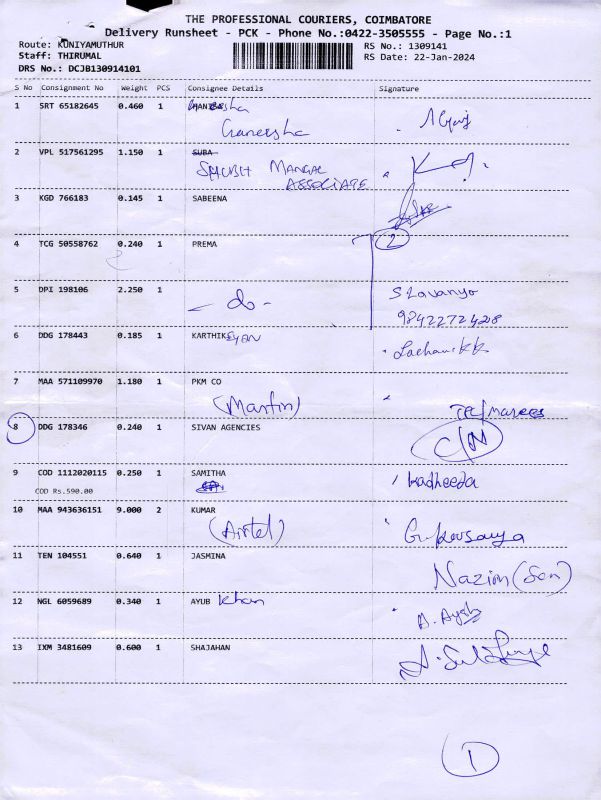 THE PROFESSIONAL COURIERS, COIMBATORE
Delivery Runsheet - PCK - Phone No.:0422-3505555 - Page No.:1
Route: KUNIYAMUTHUR RS No.: 1309141
Staff: THIRUMAL RS Date: 22-Jan-2024
DRS No.: DCJB130914101
S No Consignment No Weight PCS Consignee Details Signature
1 SRT 65182645 0.460 1
Ganeesha
2 VPL 517561295 1.150 1 SUBA
SHUBH MANGAL
ASSOCIATE
3 KGD 766183 0.145 1 SABEENA
4 TCG 50558762 0.240 1 PREMA 2
5 DPI 198106 2.250 1 - do - S Lavanya
9842272428
6 DDG 178443 0.185 1 KARTHIKEYAN
7 MAA 571109970 1.180 1 PKM CO
(Martin)
8 DDG 178346 0.240 1 SIVAN AGENCIES
9 COD 1112020115 0.250 1 SAMITHA
COD Rs.590.00
10 MAA 943636151 9.000 2 KUMAR
(Airtel)
11 TEN 104551 0.640 1 JASMINA
Nazim (Son)
12 NGL 6059689 0.340 1 AYUB Khan
A. Ayub
13 IXM 3481609 0.600 1 SHAJAHAN
1